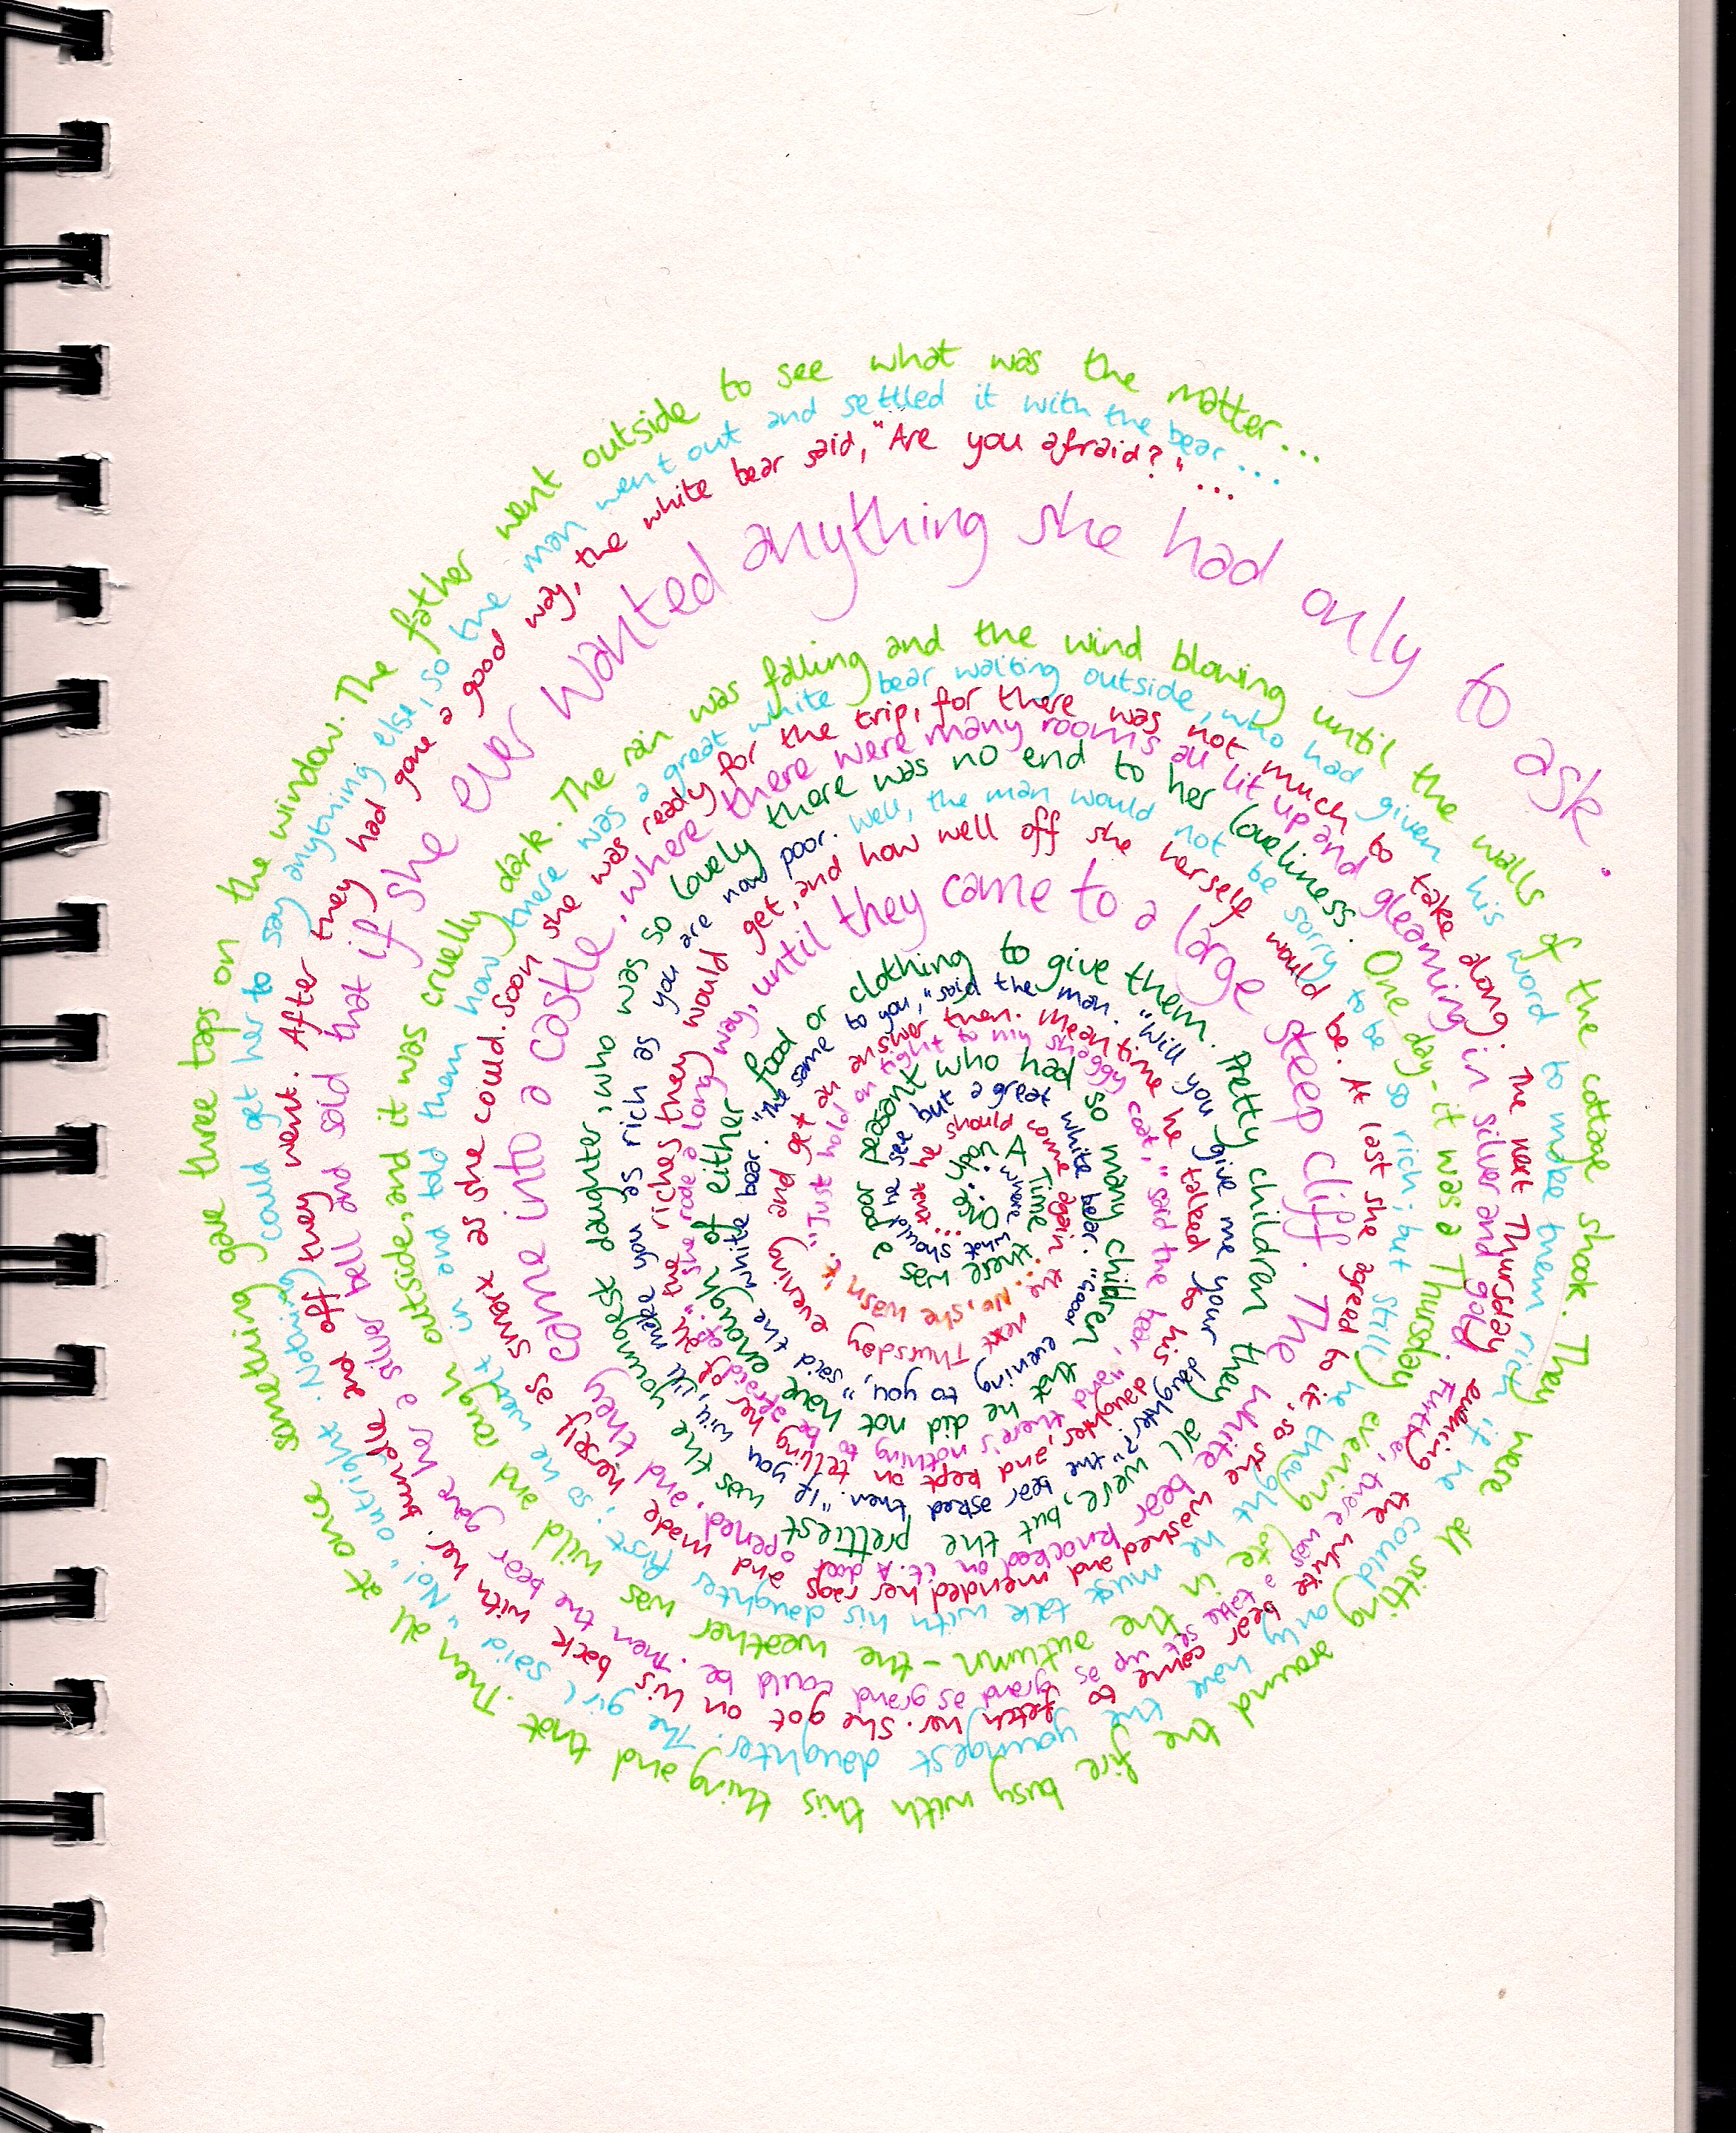 Once upon A Time there was a poor peasant who had so many children that he did not have enough of either food or clothing to give them. Pretty children they all were, but the prettiest was the youngest daughter, who was so lovely there was no end to her loveliness. One day - it was a Thursday evening late in the autumn - the weather was wild and rough outside, and it was cruelly dark. The rain was falling and the wind blowing until the walls of the cottage shook. They were all sitting around the fire busy with this thing and that. Then all at once something gave three taps on the window. The father went outside to see what was the matter...
should he see but a great white bear. "Good evening to you," said the white bear. "The same to you," said the man. "Will you give me your daughter?" the bear asked then. "If you will, I'll make you as rich as you are now poor. Well, the man would not be sorry to be so rich; but still he thought he must talk with his daughter first; so he went in and told them how there was a great white bear waiting outside, who had given his word to make them rich if he could only have the youngest daughter. The girl said "No!" outright. Nothing could get her to say anything else, so the man went out and settled it with the bear...
...that he should come again the next Thursday evening and get an answer then. Meantime he talked to his daughter, and kept on telling her of all the riches they would get, and how well off she herself would be. At last she agreed to it, so she washed and mended her rags and made herself as smart as she could. Soon she was ready for the trip, for there was not much to take along. The next Thursday evening the white bear came to fetch her. She got on his back with her bundle and off they went. After they had gone a good way, the white bear said, "Are you afraid?" ...
...No, she wasn't.
"Just hold on tight to my shaggy coat," said the bear, "and there's nothing to be afraid of." She rode a long way, until they came to a large steep cliff. The white bear knocked on it. A door opened, and they came into a castle, where there were many rooms all lit up and gleaming in silver and gold. Further, there was a table set up as grand as grand could be. Then the bear gave her a silver bell and said that if she ever wanted anything she had only to ask.